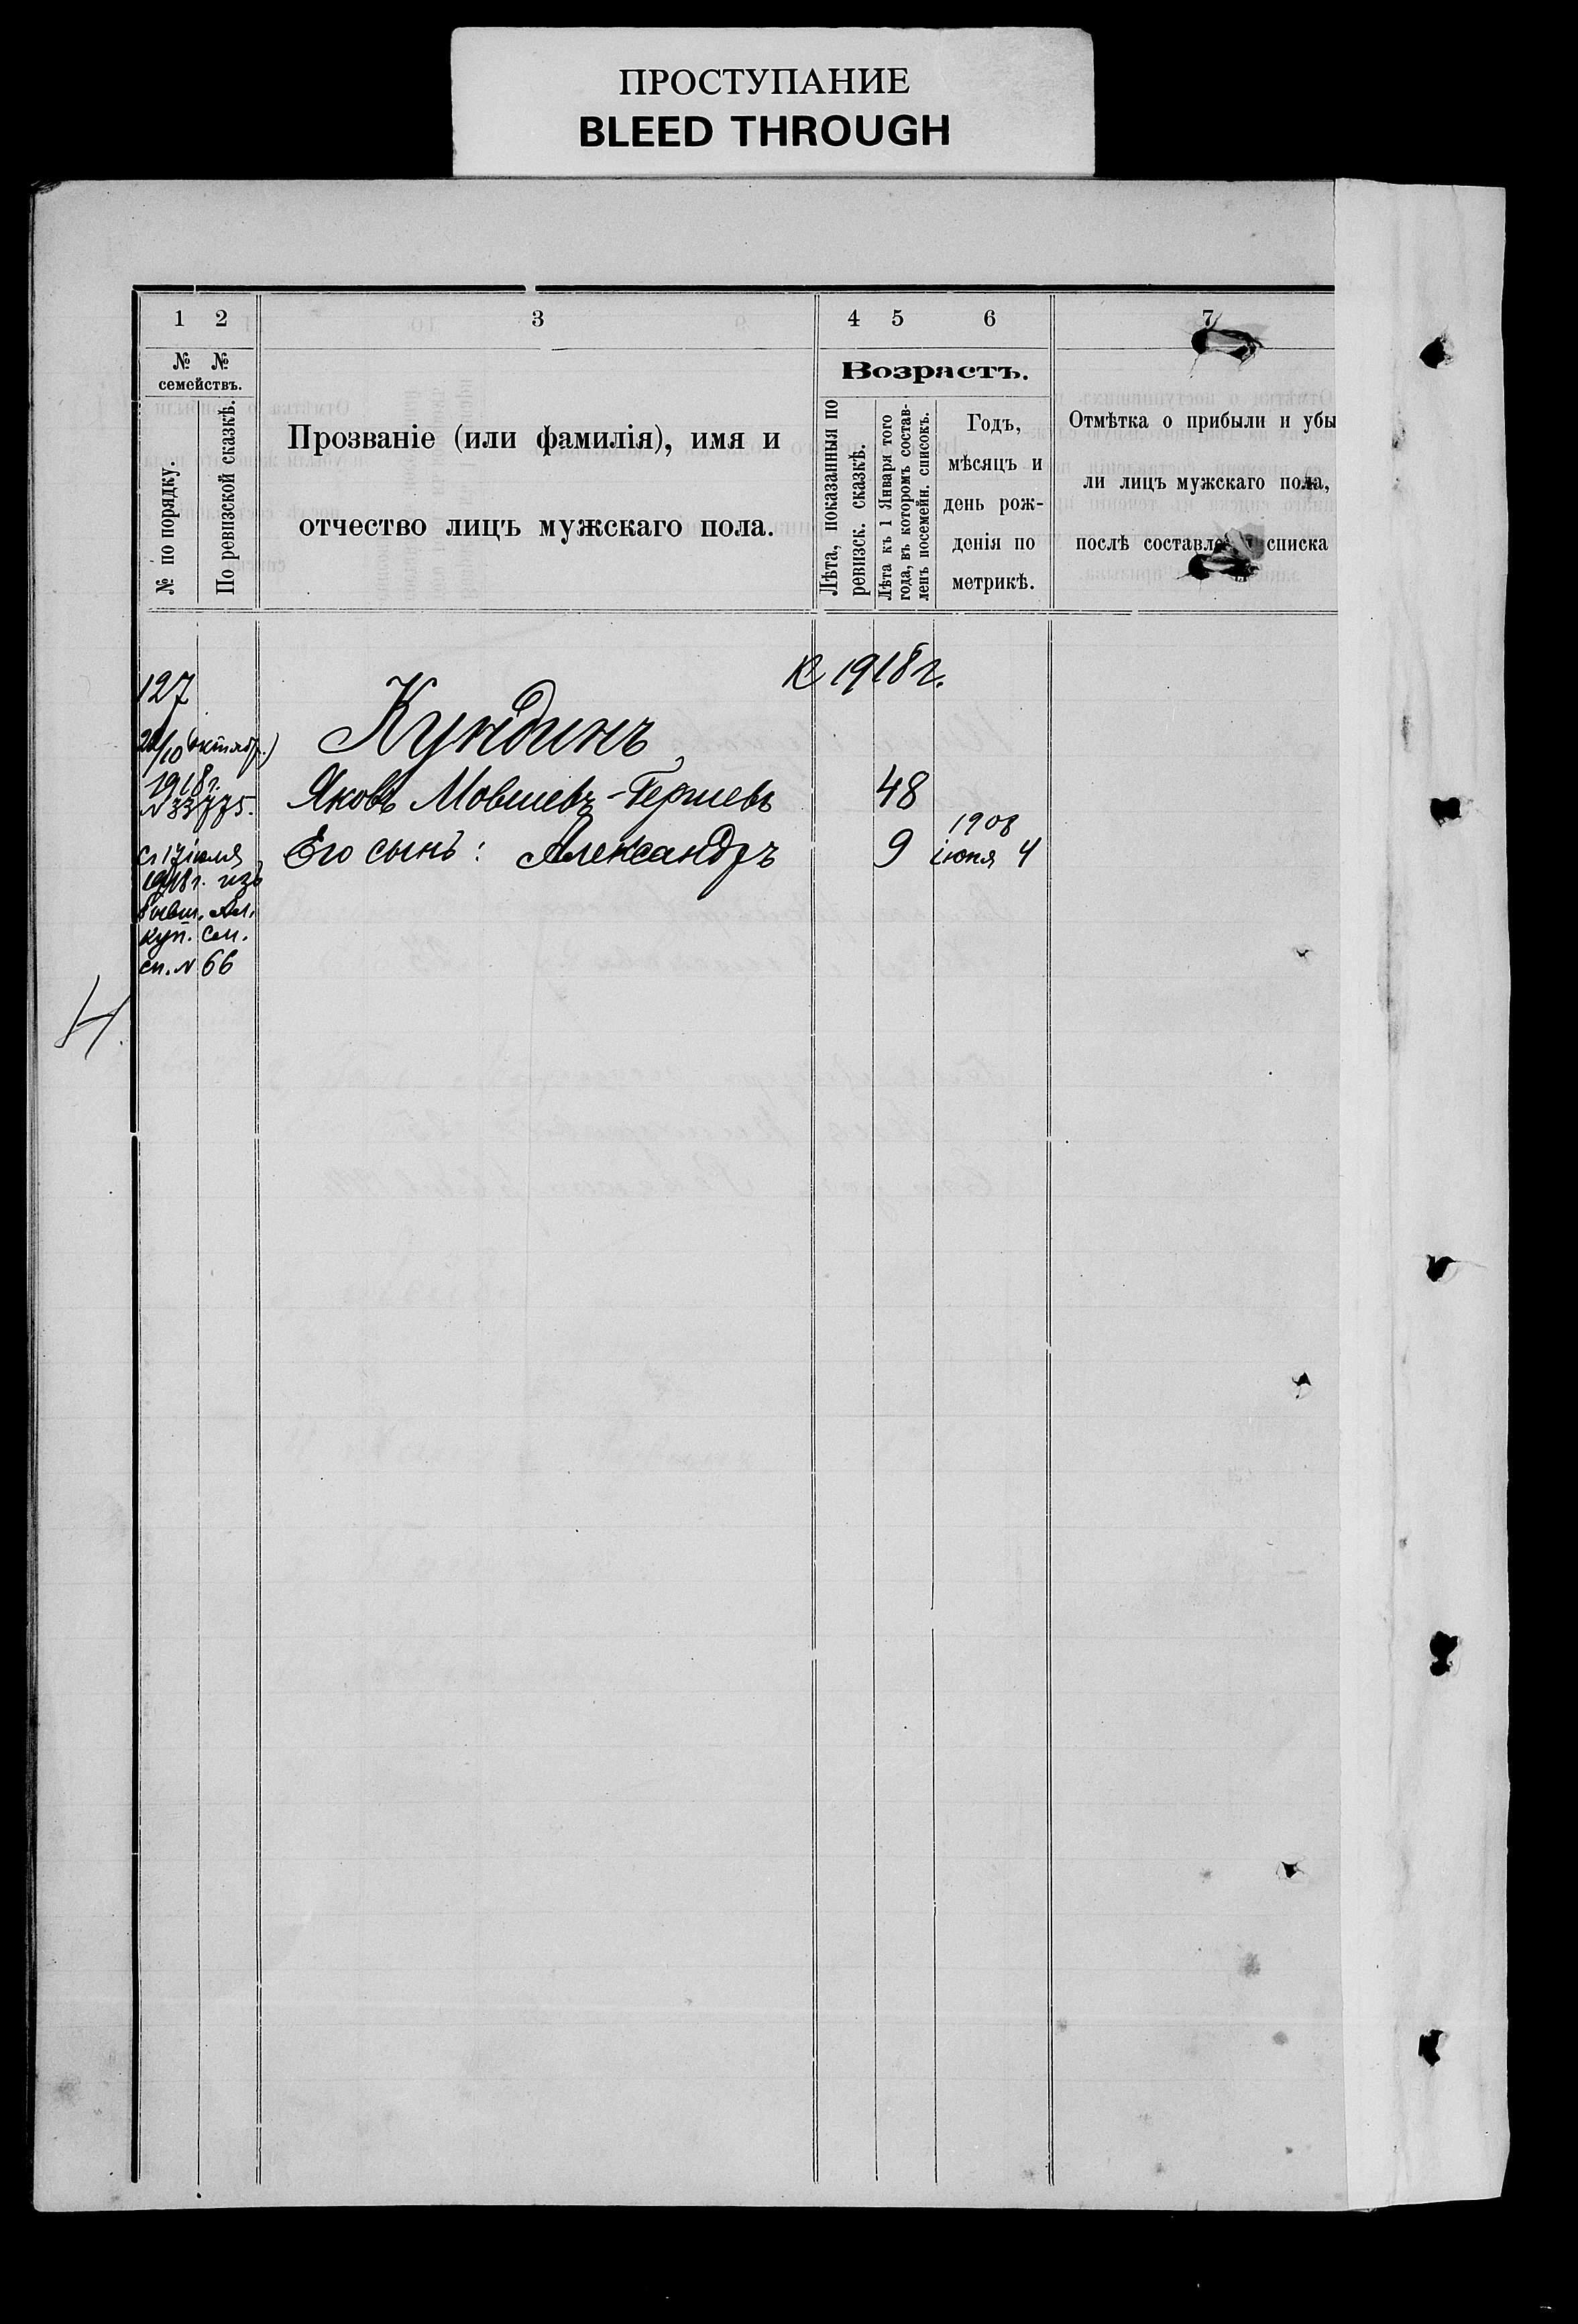 ПРОСТУПАНИЕ
BLEED THROUGH
1 2 3 4 5 6 7
№ №
семействъ.
№ по порядку.
По ревизской сказкѣ.
Прозваніе (или фамилія), имя и
отчество лицъ мужскаго пола.
Возрастъ.
Лѣта, показанныя по
ревизск. сказкѣ.
Лѣта къ 1 Января того
года, въ которомъ состав-
ленъ посемейн. списокъ.
Годъ,
мѣсяцъ и
день рож-
денія по
метрикѣ.
Отмѣтка о прибыли и убы
ли лицъ мужскаго пола,
послѣ составле списка
к 1918 г.
127
Кундинъ
октябр.)
1918 г.
Яковъ Мовшевъ-Гершевъ 48
1908
Его сынъ: Александръ 9 іюня 4
с 17 іюля
1918 г. изъ
бывш. Ал.
куп. сем.
сп. № 66